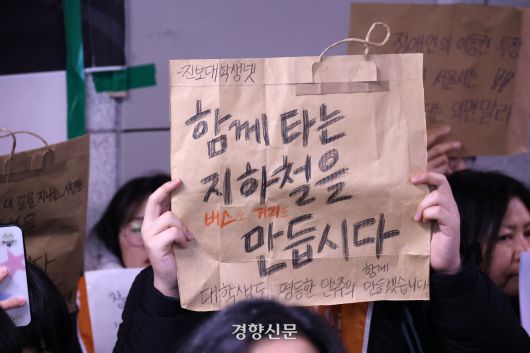 -진보대학생넷
함께 타는
지하철을
버스도
만듭시다
함께
대학생도 평등한 민주의 만들겠습니다
장애인의 이동권 투쟁
서울시는 !!
외면말라
경향신문